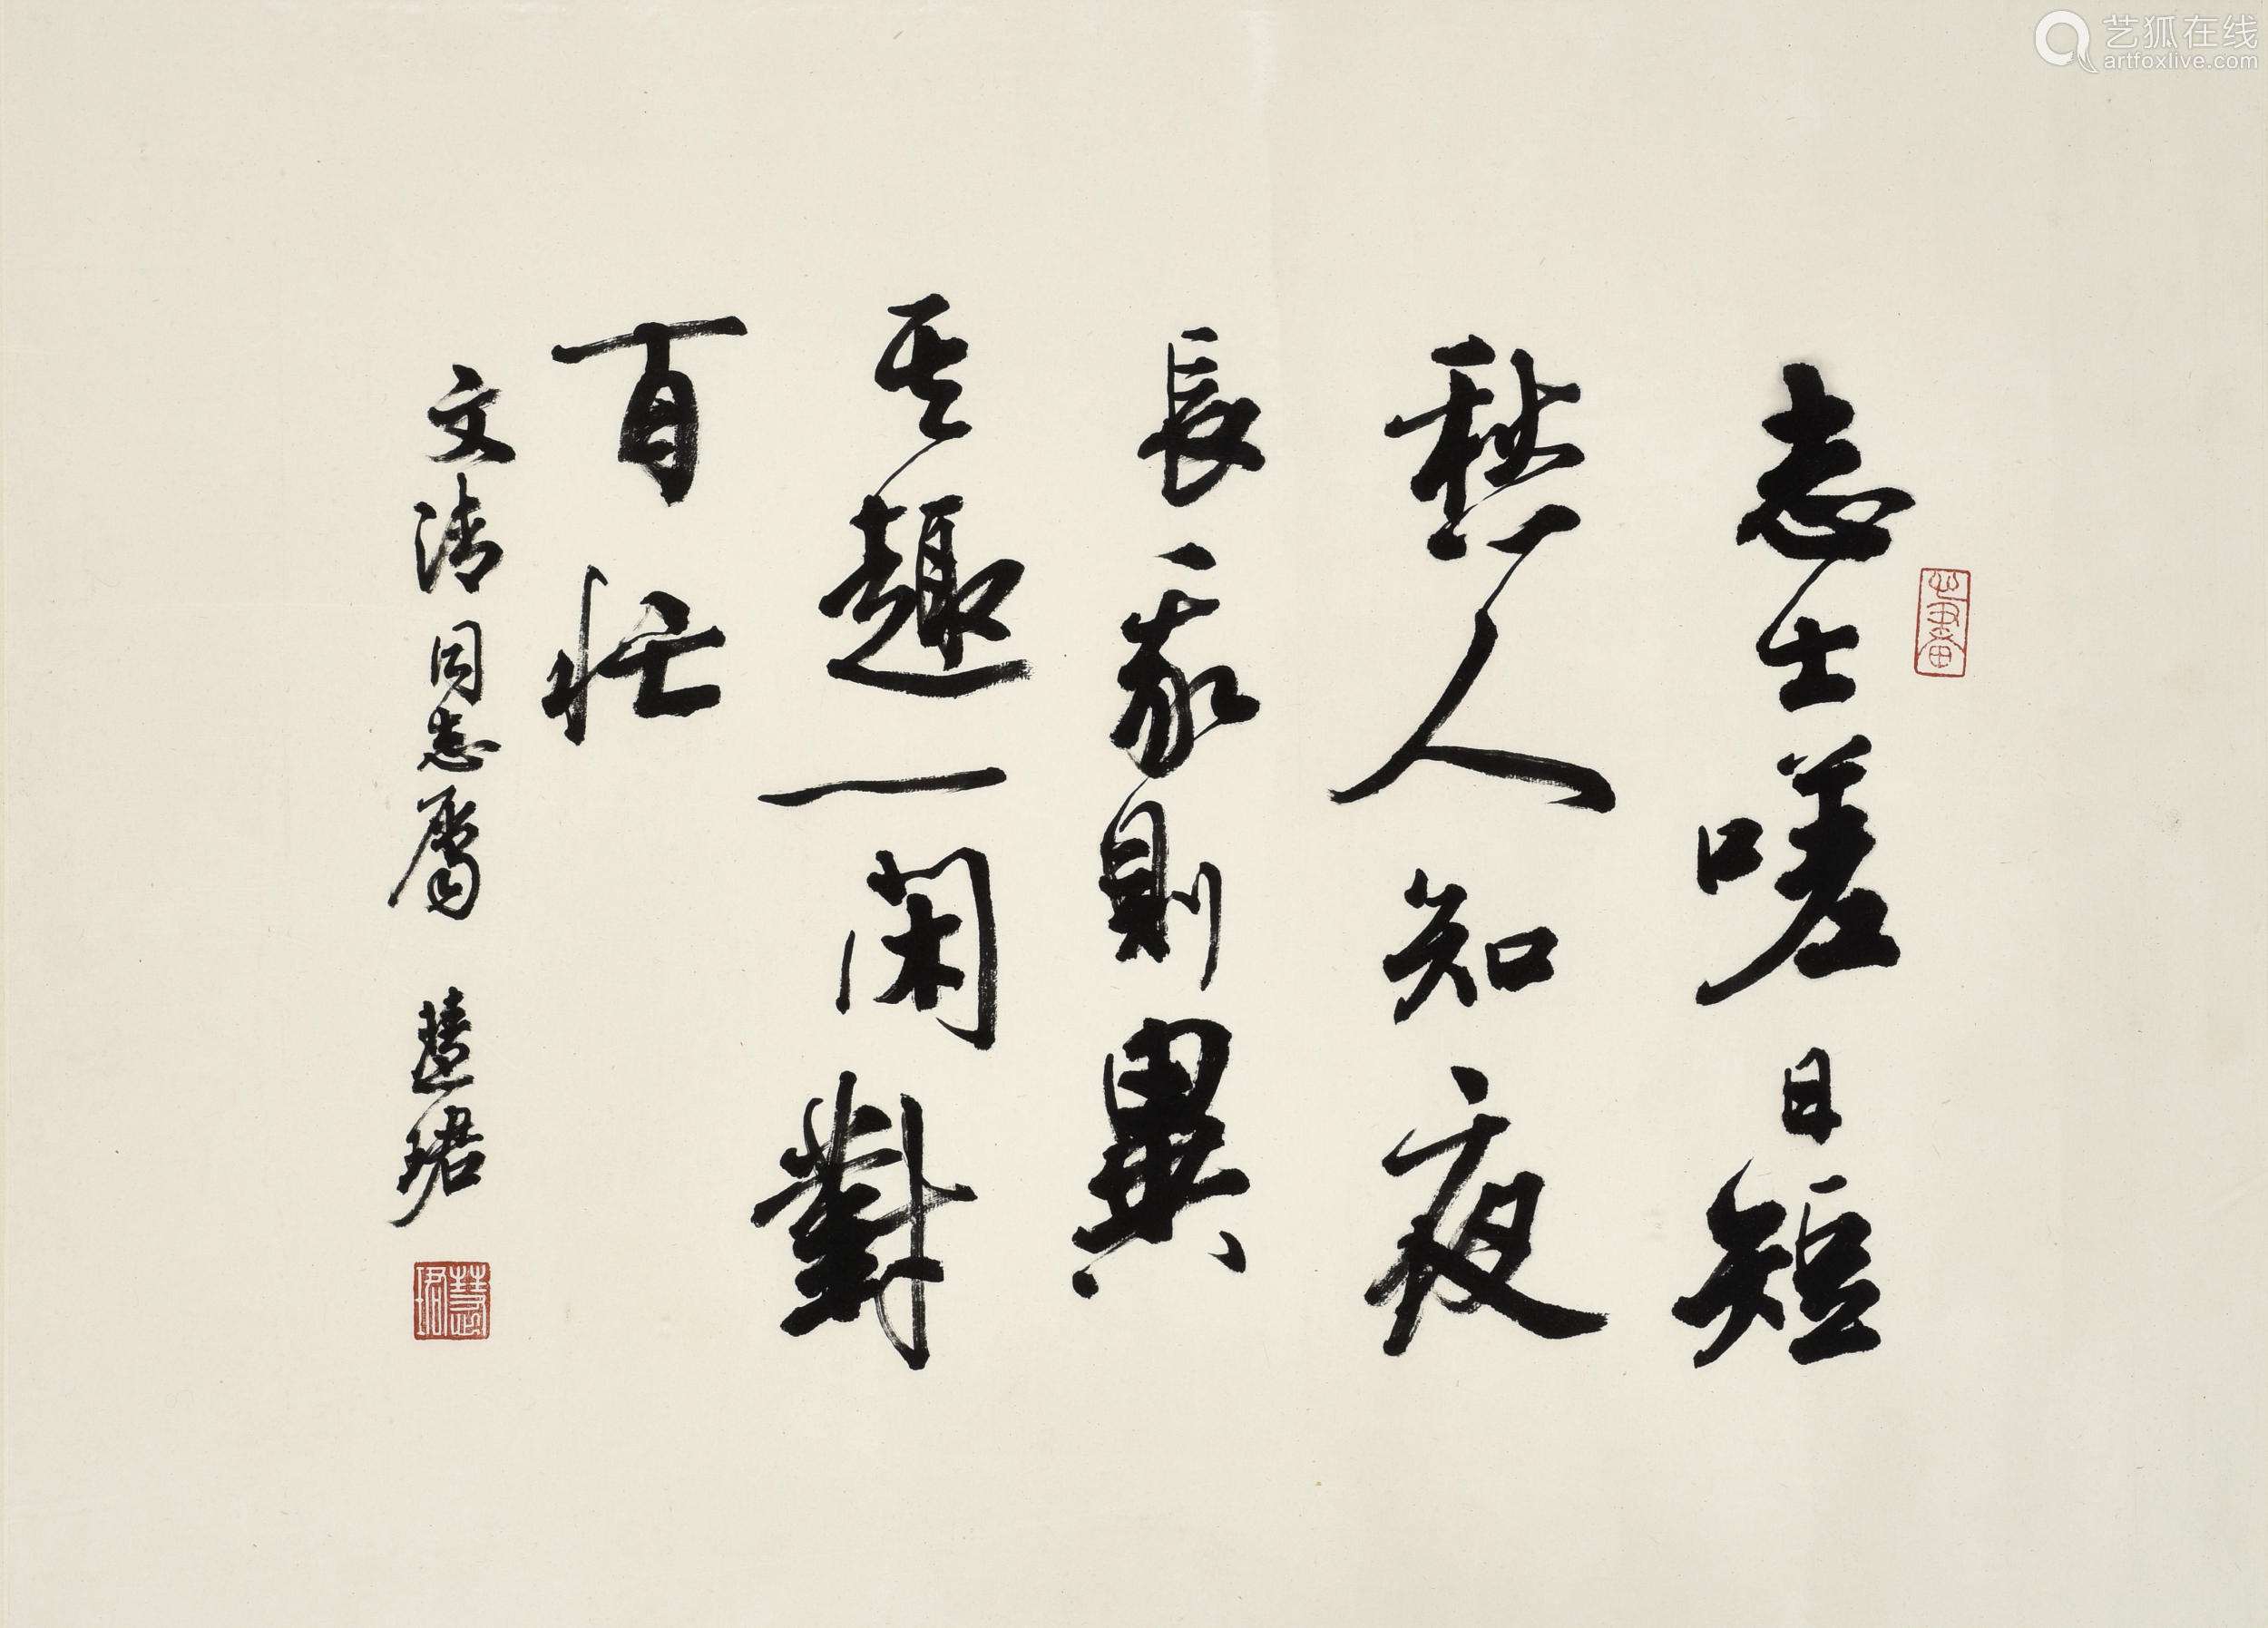 志士嗟日短
愁人知夜
長我則異
其趣一閑對
百忙
文清同志屬 慧珺
慧珺
艺狐在线
artfoxlive.com